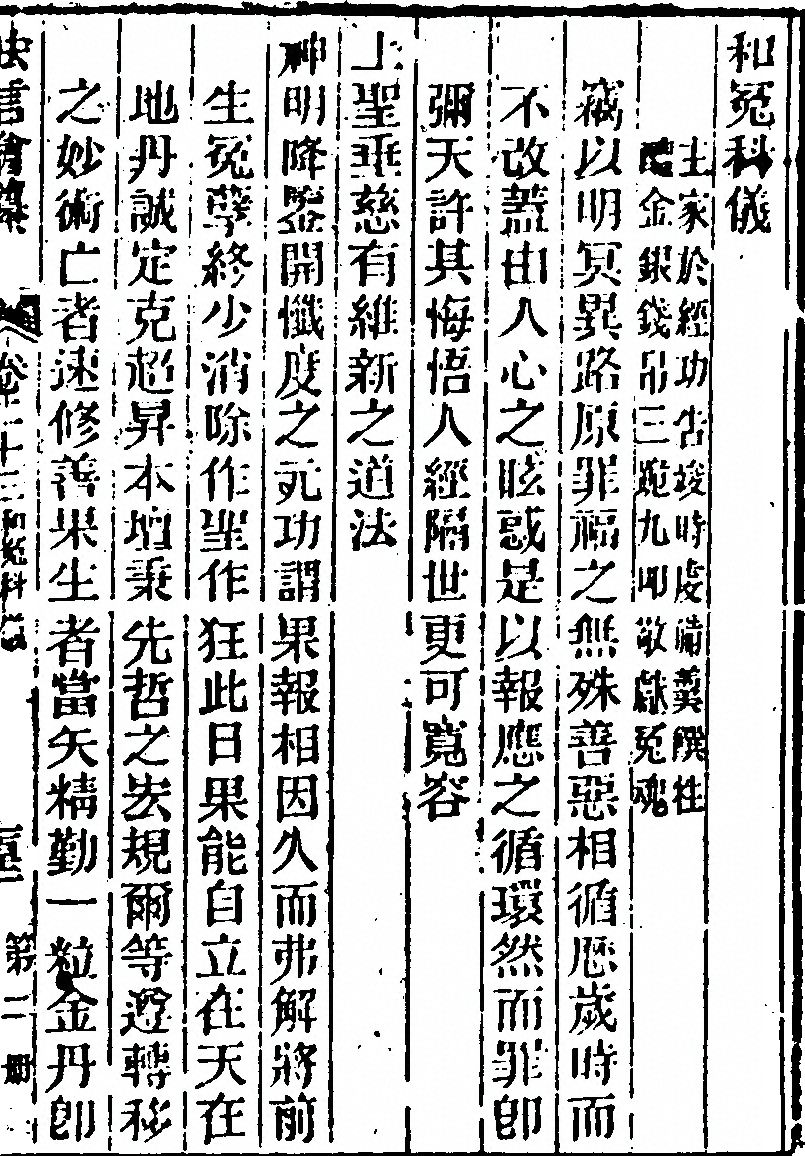 和冤科儀
主家於經功告竣時虔備羹饌牲
醴金銀錢吊三跪九叩敬獻冤魂
竊以明冥異路原罪福之無殊善惡相循歷歲時而
不改蓋由人心之眩惑是以報應之循環然而罪卽
彌天許其悔悟人經隔世更可寬容
上聖垂慈有維新之道法
神明降鑒開懺度之元功謂果報相因久而弗解將前
生冤孽終少消除作聖作狂此日果能自立在天在
地丹誠定克超昇本壇秉先哲之宏規爾等遵轉移
之妙術亡者速修善果生者當矢精勤一粒金丹卽
卷二十三和冤科儀 第二册